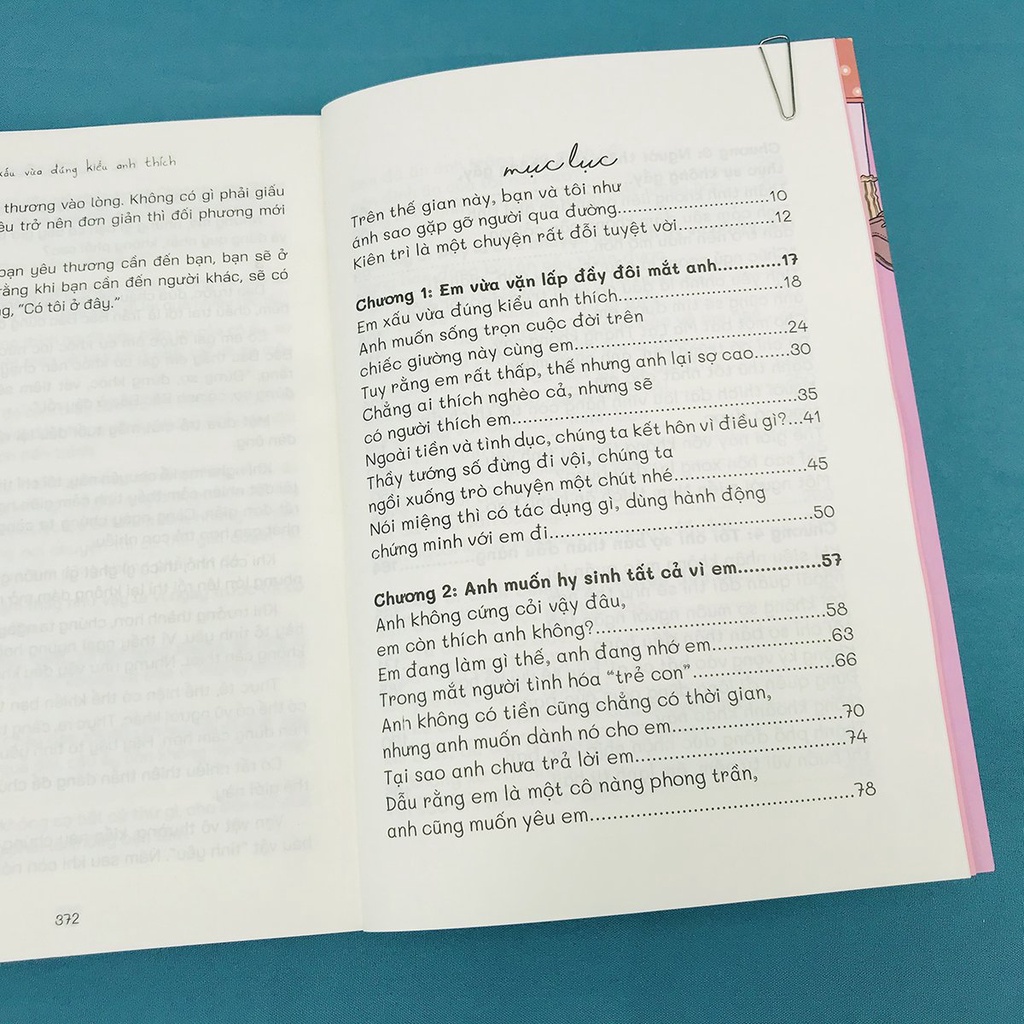 xấu vừa đúng kiểu anh thích
thương vào lòng. Không có gì phải giấu
trở nên đơn giản thì đối phương mới
bạn yêu thương cần đến bạn, bạn sẽ ở
rằng khi bạn cần đến người khác, sẽ có
"Có tôi ở đây."
372
mục lục
Trên thế gian này, bạn và tôi như
ánh sao gặp gỡ người qua đường...................10
Kiên trì là một chuyện rất đỗi tuyệt vời............12
Chương 1: Em vừa vặn lấp đầy đôi mắt anh............17
Em xấu vừa đúng kiểu anh thích....................18
Anh muốn sống trọn cuộc đời trên
chiếc giường này cùng em..........................24
Tuy rằng em rất thấp, thế nhưng anh lại sợ cao.......30
Chẳng ai thích nghèo cả, nhưng sẽ
có người thích em.................................35
Ngoài tiền và tình dục, chúng ta kết hôn vì điều gì?...41
Thầy tướng số đừng đi vội, chúng ta
ngồi xuống trò chuyện một chút nhé................45
Nói miệng thì có tác dụng gì, dùng hành động
chứng minh với em đi..............................50
Chương 2: Anh muốn hy sinh tất cả vì em...............57
Anh không cứng cỏi vậy đâu,
em còn thích anh không?...........................58
Em đang làm gì thế, anh đang nhớ em...............63
Trong mắt người tình hóa “trẻ con”..................66
Anh không có tiền cũng chẳng có thời gian,
nhưng anh muốn dành nó cho em.....................70
Tại sao anh chưa trả lời em.......................74
Dẫu rằng em là một cô nàng phong trần,
anh cũng muốn yêu em..............................78